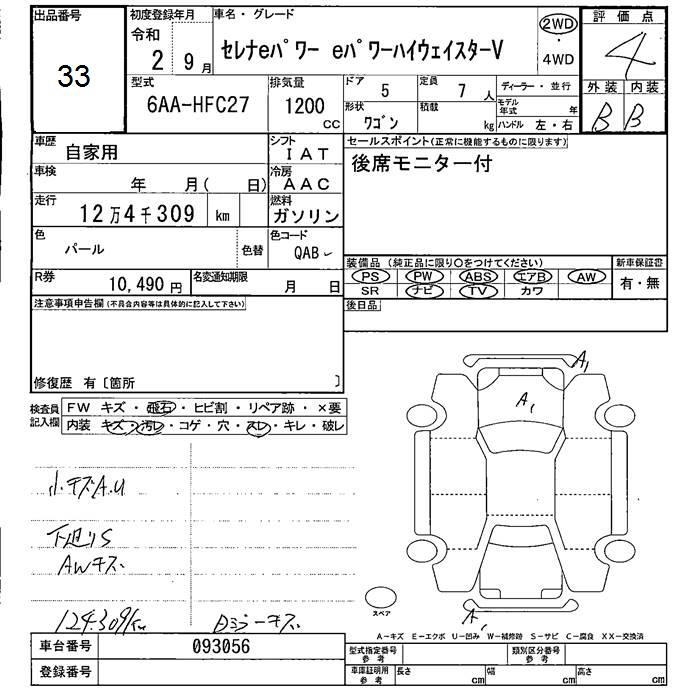 出品番号
33
初度登録年月
令和
2 9月
車名・グレード
セレナeパワー eパワーハイウェイスターV
2WD
・
4WD
評価点
4
外装 内装
B B
型式
6AA-HFC27
排気量
1200
CC
ドア 5
定員 7 人
形状 ワゴン
積載 kg
ディーラー・並行
モデル年式 年
ハンドル 左・右
車歴 自家用
シフト IAT
車検 年 月( 日)
冷房 AAC
走行 12万4千309 km
燃料 ガソリン
色 パール 色替
色コード QAB
R券 10,490円
名変通知期限 月 日
セールスポイント(正常に機能するものに限ります)
後席モニター付
装備品(純正品に限り〇をつけてください)
PS PW ABS エアB AW
SR ナビ TV カワ
新車保証書
有・無
後日品
注意事項申告欄(不具合内容等は具体的に記入して下さい)
修復歴 有〔箇所 〕
検査員記入欄
FW キズ・飛石・ヒビ割・リペア跡・×要
内装 キズ・汚レ・コゲ・穴・スレ・キレ・破レ
小キズA.U
下廻りS
AWキズ
124.309km
Dミラーキズ
A1
A1
A1
スペア
A-キズ E-エクボ U-凹み W-補修跡 S-サビ C-腐食 XX-交換済
車台番号 093056
登録番号
型式指定番号参考
類別区分番号参考
車庫証明用参考
長さ cm
幅 cm
高さ cm